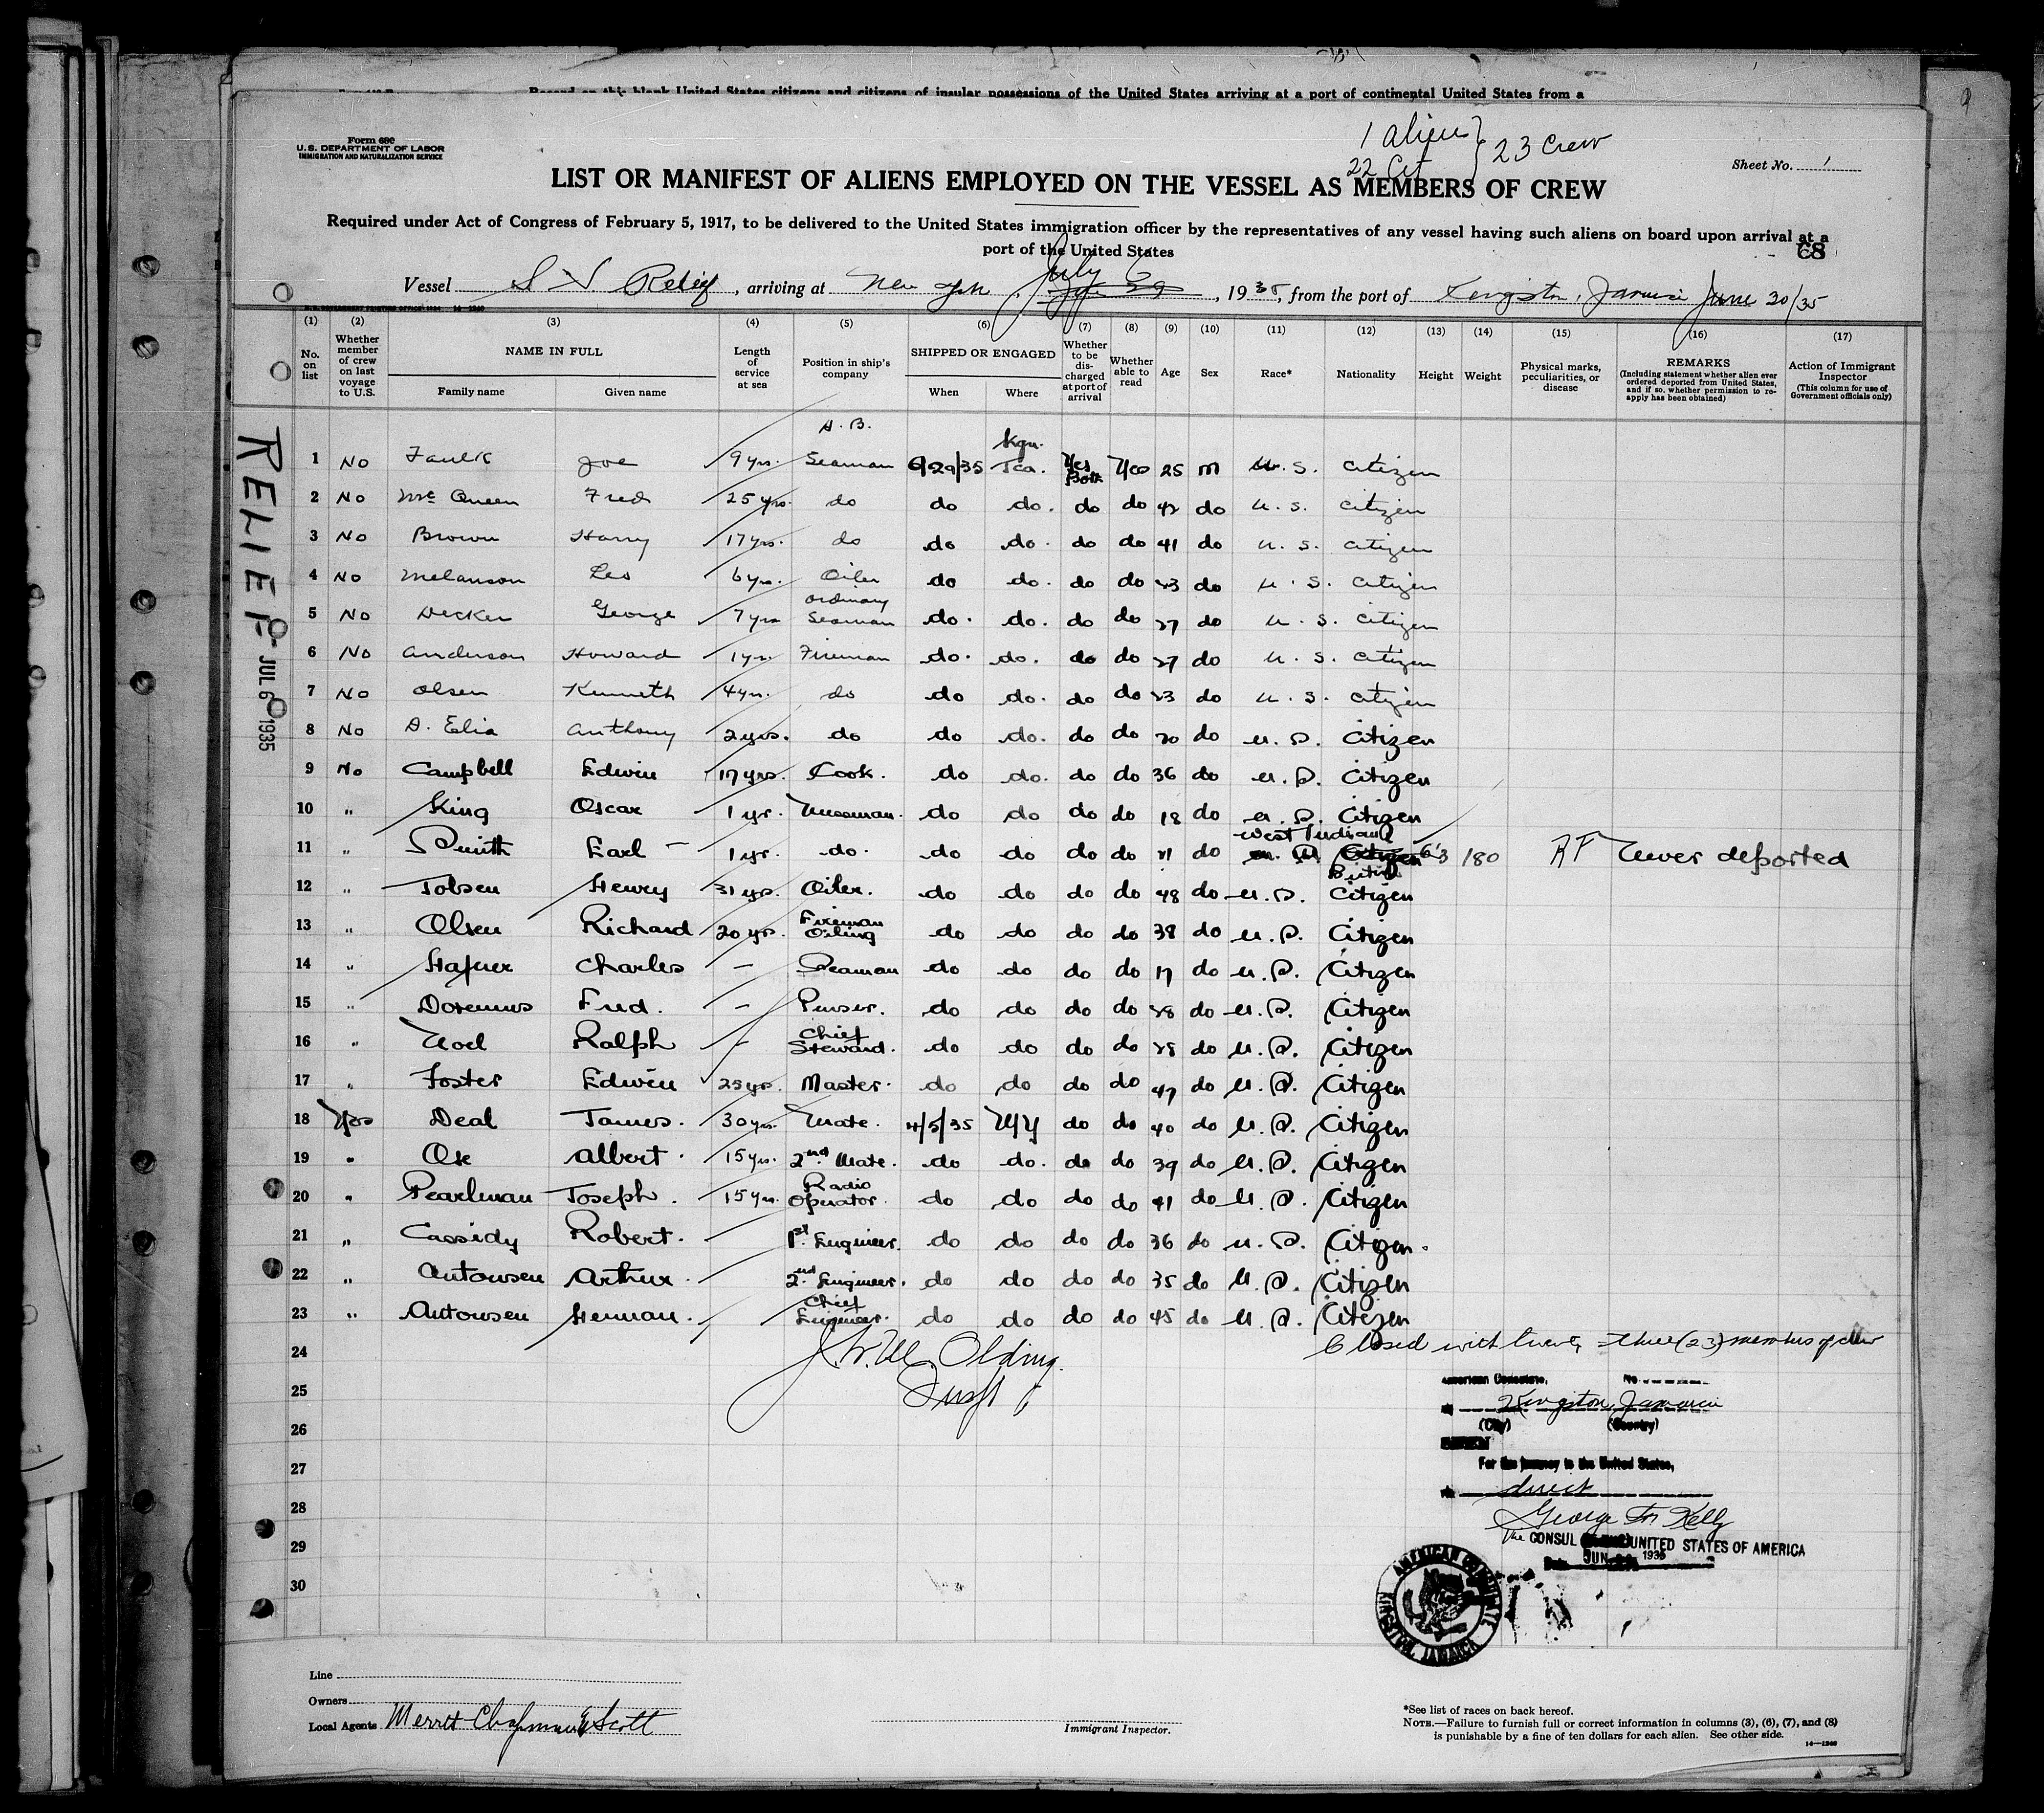 Record on this blank United States citizens and citizens of insular possessions of the United States arriving at a port of continental United States from a
Form 680
U.S. DEPARTMENT OF LABOR
IMMIGRATION AND NATURALIZATION SERVICE
1 alien } 23 Crew
22 Cit
Sheet No. 1
LIST OR MANIFEST OF ALIENS EMPLOYED ON THE VESSEL AS MEMBERS OF CREW
Required under Act of Congress of February 5, 1917, to be delivered to the United States immigration officer by the representatives of any vessel having such aliens on board upon arrival at a
port of the United States
68
July 6
Vessel S S Relief, arriving at New York, 1935, from the port of Kingston, Jamaica June 30/35
(1) (2) (3) (4) (5) (6) (7) (8) (9) (10) (11) (12) (13) (14) (15) (16) (17)
No. on list
Whether member of crew on last voyage to U.S.
NAME IN FULL
Family name Given name
Length of service at sea
Position in ship's company
SHIPPED OR ENGAGED
When Where
Whether to be discharged at port of arrival
Whether able to read
Age
Sex
Race*
Nationality
Height
Weight
Physical marks, peculiarities, or disease
REMARKS
(Including statement whether alien ever ordered deported from United States, and if so, whether permission to re-apply has been obtained)
Action of Immigrant Inspector
(This column for use of Government officials only)
RELIEF
JUL 6 1935
A. B. Kgn.
1 No Faulk Joe 9 yrs. Seaman 6/29/35 Jca. Yes Yes 25 M U. S. Citizen
2 No McQueen Fred 25 yrs. do do do. do do 42 do U. S. Citizen
3 No Brown Harry 17 yrs. do do do. do do 41 do U. S. Citizen
4 No Melanson Leo 6 yrs. Oiler do do. do do do U. S. Citizen
5 No Decker George 7 yrs Ordinary Seaman do. do. do do do U. S. Citizen
6 No Anderson Howard 1 yr. Fireman do. do. do do do U. S. Citizen
7 No Olsen Kenneth 4 yrs. do do do. do do do U. S. Citizen
8 No D. Elia Anthony 2 yrs. do do do. do do do U. S. Citizen
9 No Campbell Edwin 17 yrs. Cook. do do. do do 36 do U. S. Citizen
10 " King Oscar 1 yr. Messman. do do do do 18 do U. S. Citizen
West Indian
11 " Smith Earl 1 yr. do. do do do do do British 6'3 180 Never deported
12 " Tobsen Henry 31 yrs. Oiler. do do do do 48 do U. S. Citizen
13 " Olsen Richard 20 yrs. Fireman Oiling do do do do 38 do U. S. Citizen
14 " Hafner Charles - Seaman do do do do 17 do U. S. Citizen
15 " Doremus Fred. - Purser. do do do do do U. S. Citizen
16 " Noel Ralph - Chief Steward. do do do do do U. S. Citizen
17 " Foster Edwin 25 yrs. Master. do do do do 47 do U. S. Citizen
18 Yes Deal James. 30 yrs. Mate. 4/5/35 NY do do 40 do U. S. Citizen
19 " Ok Albert. 15 yrs. 2nd Mate. do do. do do 39 do U. S. Citizen
20 " Pearlman Joseph. 15 yrs. Radio Operator. do do do do 41 do U. S. Citizen
21 " Cassidy Robert. 1st Engineer. do do do do 36 do U. S. Citizen.
22 " Antonsen Arthur. 2nd Engineer. do do do do 35 do U. S. Citizen
23 " Antonsen Herman. Chief Engineer. do do do do 45 do U. S. Citizen
24 Closed with twenty three (23) members of crew
25
26
27
28
29
30
American Consulate, No.
at Kingston, Jamaica
(City) (Country)
For the journey to the United States,
direct
George Kelly
The CONSUL UNITED STATES OF AMERICA
Date JUN 1935
AMERICAN CONSULATE
KINGSTON, JAMAICA
Line
Owners
Local Agents Merritt Chapman & Scott
Immigrant Inspector.
*See list of races on back hereof.
NOTE.—Failure to furnish full or correct information in columns (3), (6), (7), and (8)
is punishable by a fine of ten dollars for each alien. See other side.
14—1240